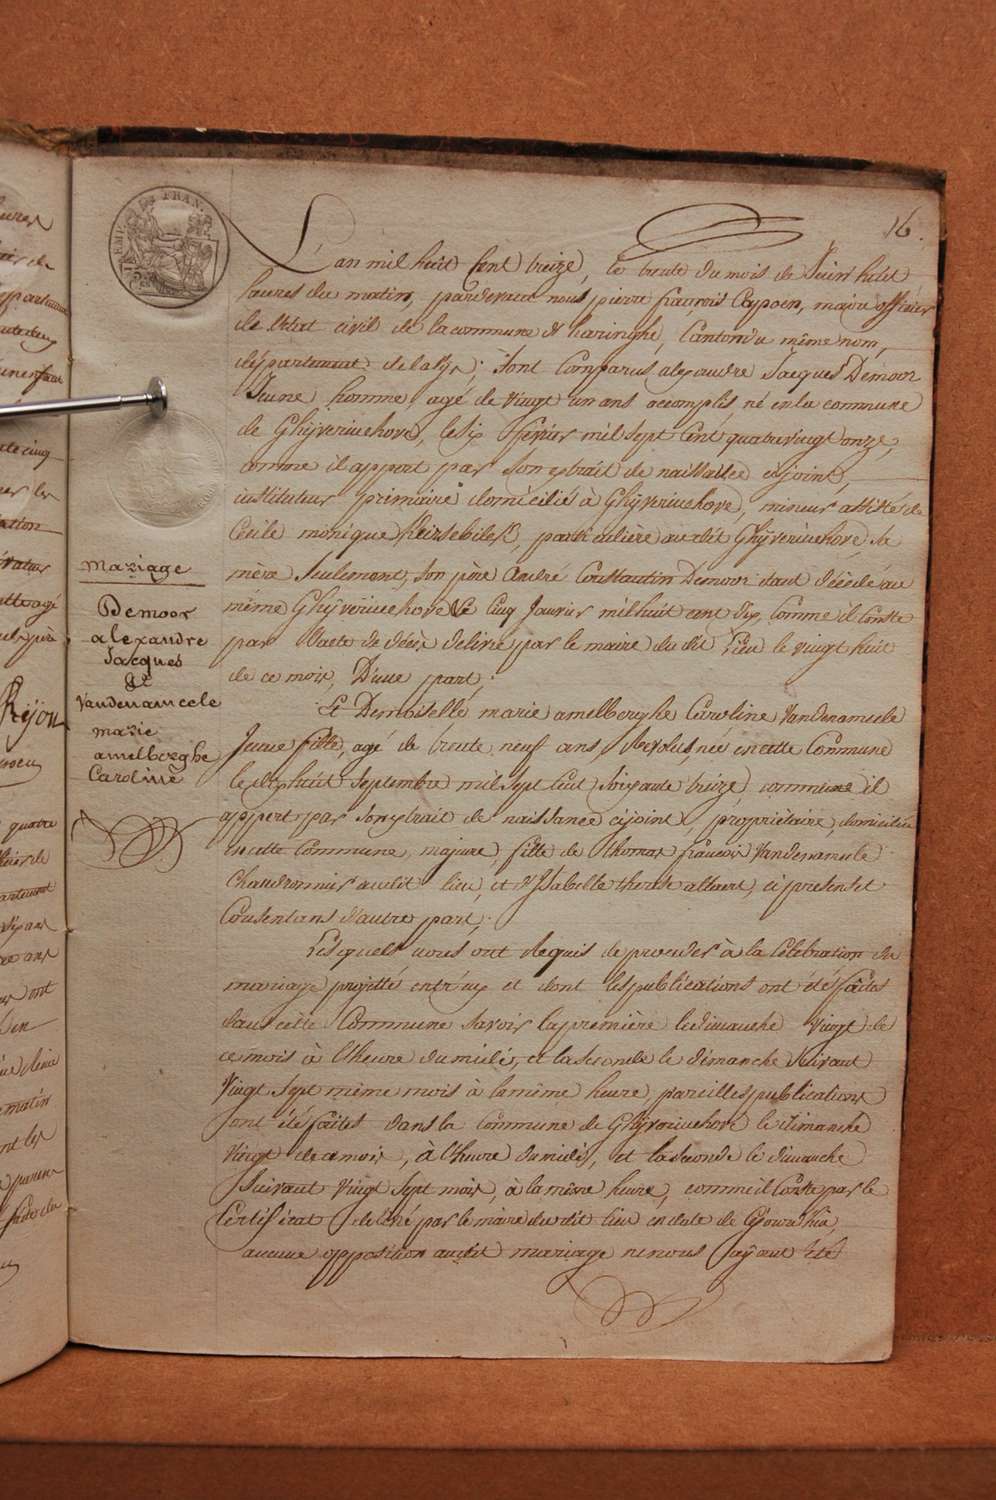 16.
L'an mil huit Cent treize, le trente du mois de Juin huit
heures du matin, pardevant nous pierre françois Capoen, maire officier
de l'état civil de la commune d'haringhe, Canton du même nom,
département de la Lÿs; Sont Comparus alexandre Jacques Demoor
Jeune homme, agé de vingt un ans accomplis, né en la commune
de Ghÿverinchove, le Six fevrier mil sept Cent quatrevingt onze,
comme il appert par Son extrait de naissance cijoint,
instituteur primaire domicilié à Ghÿverinchove, mineur assisté de
Cecile monique particulière audit Ghÿverinchove, Sa
mère Seulement, Son père André Constantin Demoor étant décédé au
même Ghÿverinchove le Cinq Janvier mil huit cent dix, Comme il Conste
par l'acte de décès délivré par le maire du dit Lieu le vingt huit
de ce mois, D'une part;
Et Demoiselle marie amelberghe Caroline Vandenameele
Jeune fille, agé de trente neuf ans, Révolus, née en cette Commune
le dix huit Septembre mil Sept Cent Soixante treize, comme il
appert par Son extrait de naissance cijoint, propriétaire, domiciliée
en cette Commune, majeure, fille de thomas françois Vandenameele
Chaudronnier audit lieu, et d'Isabelle therese allaert, ci présents et
Consentans d'autre part;
Lesquels nous ont Requis de proceder à la Célébration du
mariage projetté entr'eux et dont les publications ont été faites
dans cette Commune Savoir la première le dimanche vingt de
ce mois à l'heure du midi, et la Seconde le dimanche Suivant
vingt Sept même mois à la même heure, pareilles publications
Sont été faites dans la Commune de Ghÿverinchove le dimanche
vingt de ce mois, à l'heure du midi, et la Seconde le dimanche
Suivant vingt Sept mois, à la même heure, comme il Conste par le
Certificat délivré par le maire du dit lieu en date de
aucune opposition audit mariage ne nous aÿant été
mariage
Demoor
alexandre
Jacques
&
Vandenameele
marie
amelberghe
Caroline